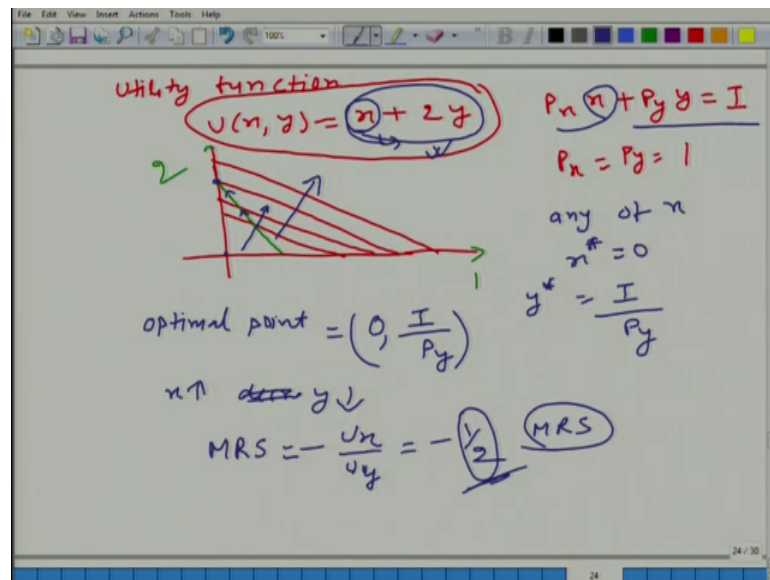 File Edit View Insert Actions Tools Help
100%
B I
utility function
U(x, y) = x + 2y
Px x + Py y = I
Px = Py = 1
2
1
any of x
x* = 0
y* = I / Py
optimal point = (0, I / Py)
x↑ y↓
MRS = - Ux / Uy = - 1/2 MRS
24 / 30
24